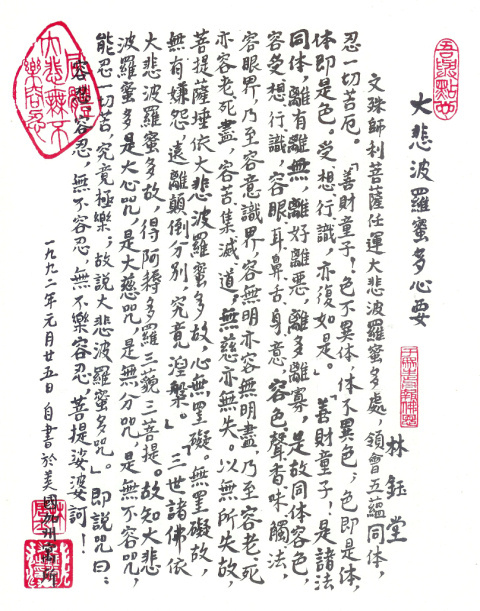 大悲波羅蜜多心要
林鈺堂
文殊師利菩薩任運大悲波羅蜜多處，領會五蘊同体，
忍一切苦厄。「善財童子！色不異体，体不異色；色即是体，
体即是色。受想行識，亦復如是。「善財童子！是諸法
同体，離有離無，離好離惡，離多離寡，是故同体容色，
容受想行識，容眼耳鼻舌身意，容色聲香味觸法，
容眼界，乃至容意識界，容無明亦容無明盡，乃至容老死
亦容老死盡，容苦集滅道，無慈亦無失。以無所失故，
菩提薩埵依大悲波羅蜜多故，心無罣礙。無罣礙故，
無有嫌怨，遠離顛倒分別，究竟涅槃。」「三世諸佛依
大悲波羅蜜多故，得阿耨多羅三藐三菩提。故知大悲
波羅蜜多是大心咒，是大慈咒，是無分咒，是無不容咒，
能忍一切苦，究竟極樂；故說大悲波羅蜜多咒。」即說咒曰：
容忍，無不容忍，無不樂容忍，菩提娑婆訶！
一九九二年元月廿五日自書於美國加州寓所